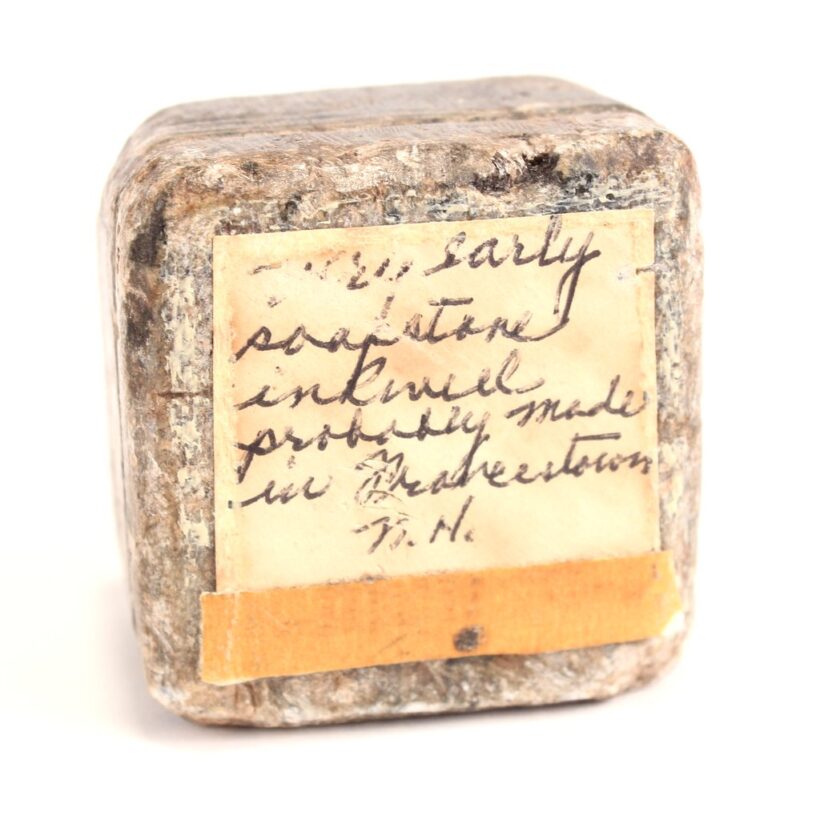 Very early
soapstone
inkwell
probably made
in Francestown
N.H.